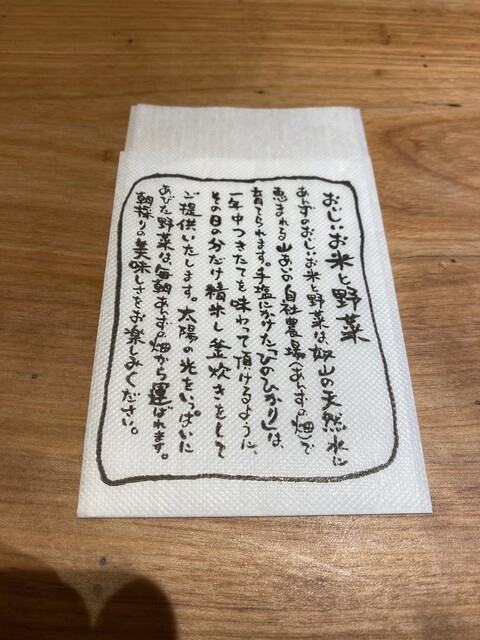 おいしいお米と野菜
あんずのおいしいお米と野菜は、奴山の天然水に
恵まれる山あいの自社農場(あんずの畑)で
育てられます。手塩にかけた「ひのひかり」は、
一年中つきたてを味わって頂けるように、
その日の分だけ精米し釜炊きをして
ご提供いたします。太陽の光をいっぱいに
あびた野菜は、毎朝あんずの畑から運ばれます。
朝採りの美味しさをお楽しみください。